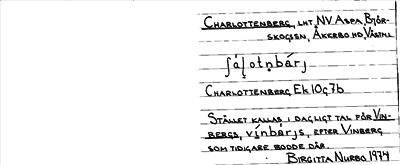 CHARLOTTENBERG, LHT NV ASPA, BJÖR-
SKOGSN, ÅKERBO HD, VÄSTML
ʃáḷotṇbárj
CHARLOTTENBERG Ek 10g7b
STÄLLET KALLAS I DAGLIGT TAL FÖR VIN-
BERGS, vínbárjs, EFTER VINBERG
SOM TIDIGARE BODDE DÄR.
BIRGITTA NURBO 1974